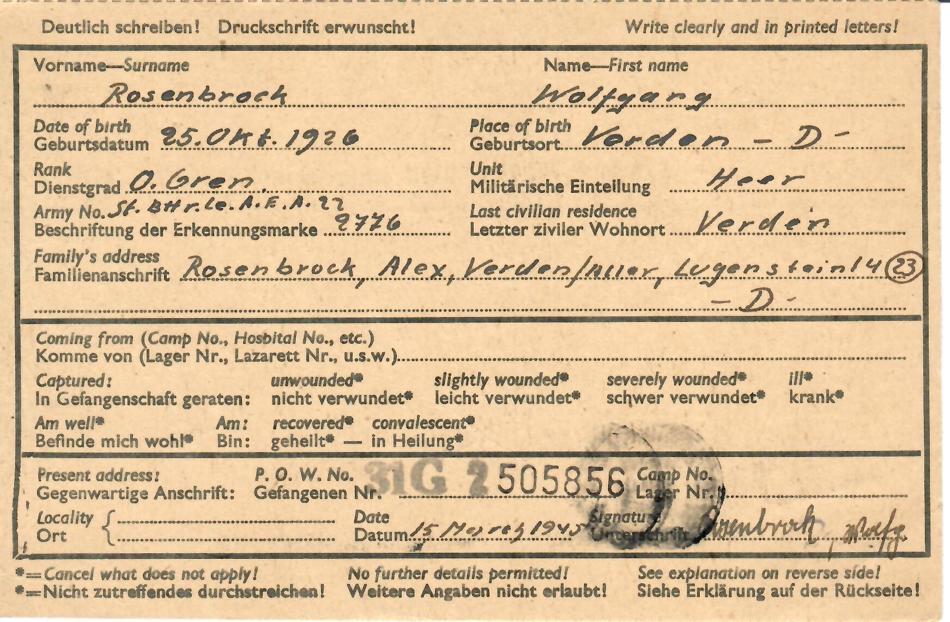 Deutlich schreiben! Druckschrift erwunscht! Write clearly and in printed letters!
Vorname—Surname Name—First name
Rosenbrock Wolfgang
Date of birth Place of birth
Geburtsdatum 25. Okt. 1926 Geburtsort Verden - D -
Rank Unit
Dienstgrad O. Gren. Militärische Einteilung Heer
Army No. St. Bttr. le. A. E. A. 22 Last civilian residence
Beschriftung der Erkennungsmarke 2776 Letzter ziviler Wohnort Verden
Family's address
Familienanschrift Rosenbrock, Alex, Verden/Aller, Lugenstein 14 23
- D -
Coming from (Camp No., Hosbital No., etc.)
Komme von (Lager Nr., Lazarett Nr., u.s.w.)
Captured: unwounded* slightly wounded* severely wounded* ill*
In Gefangenschaft geraten: nicht verwundet* leicht verwundet* schwer verwundet* krank*
Am well* Am: recovered* convalescent*
Befinde mich wohl* Bin: geheilt* — in Heilung*
Present address: P. O. W. No. Camp No.
Gegenwartige Anschrift: Gefangenen Nr. 31G 2 505856 Lager Nr.
Locality Date Signature
Ort Datum 15 March 1945 Unterschrift Rosenbrock, Wolfg.
*=Cancel what does not apply! No further details permitted! See explanation on reverse side!
*=Nicht zutreffendes durchstreichen! Weitere Angaben nicht erlaubt! Siehe Erklärung auf der Rückseite!